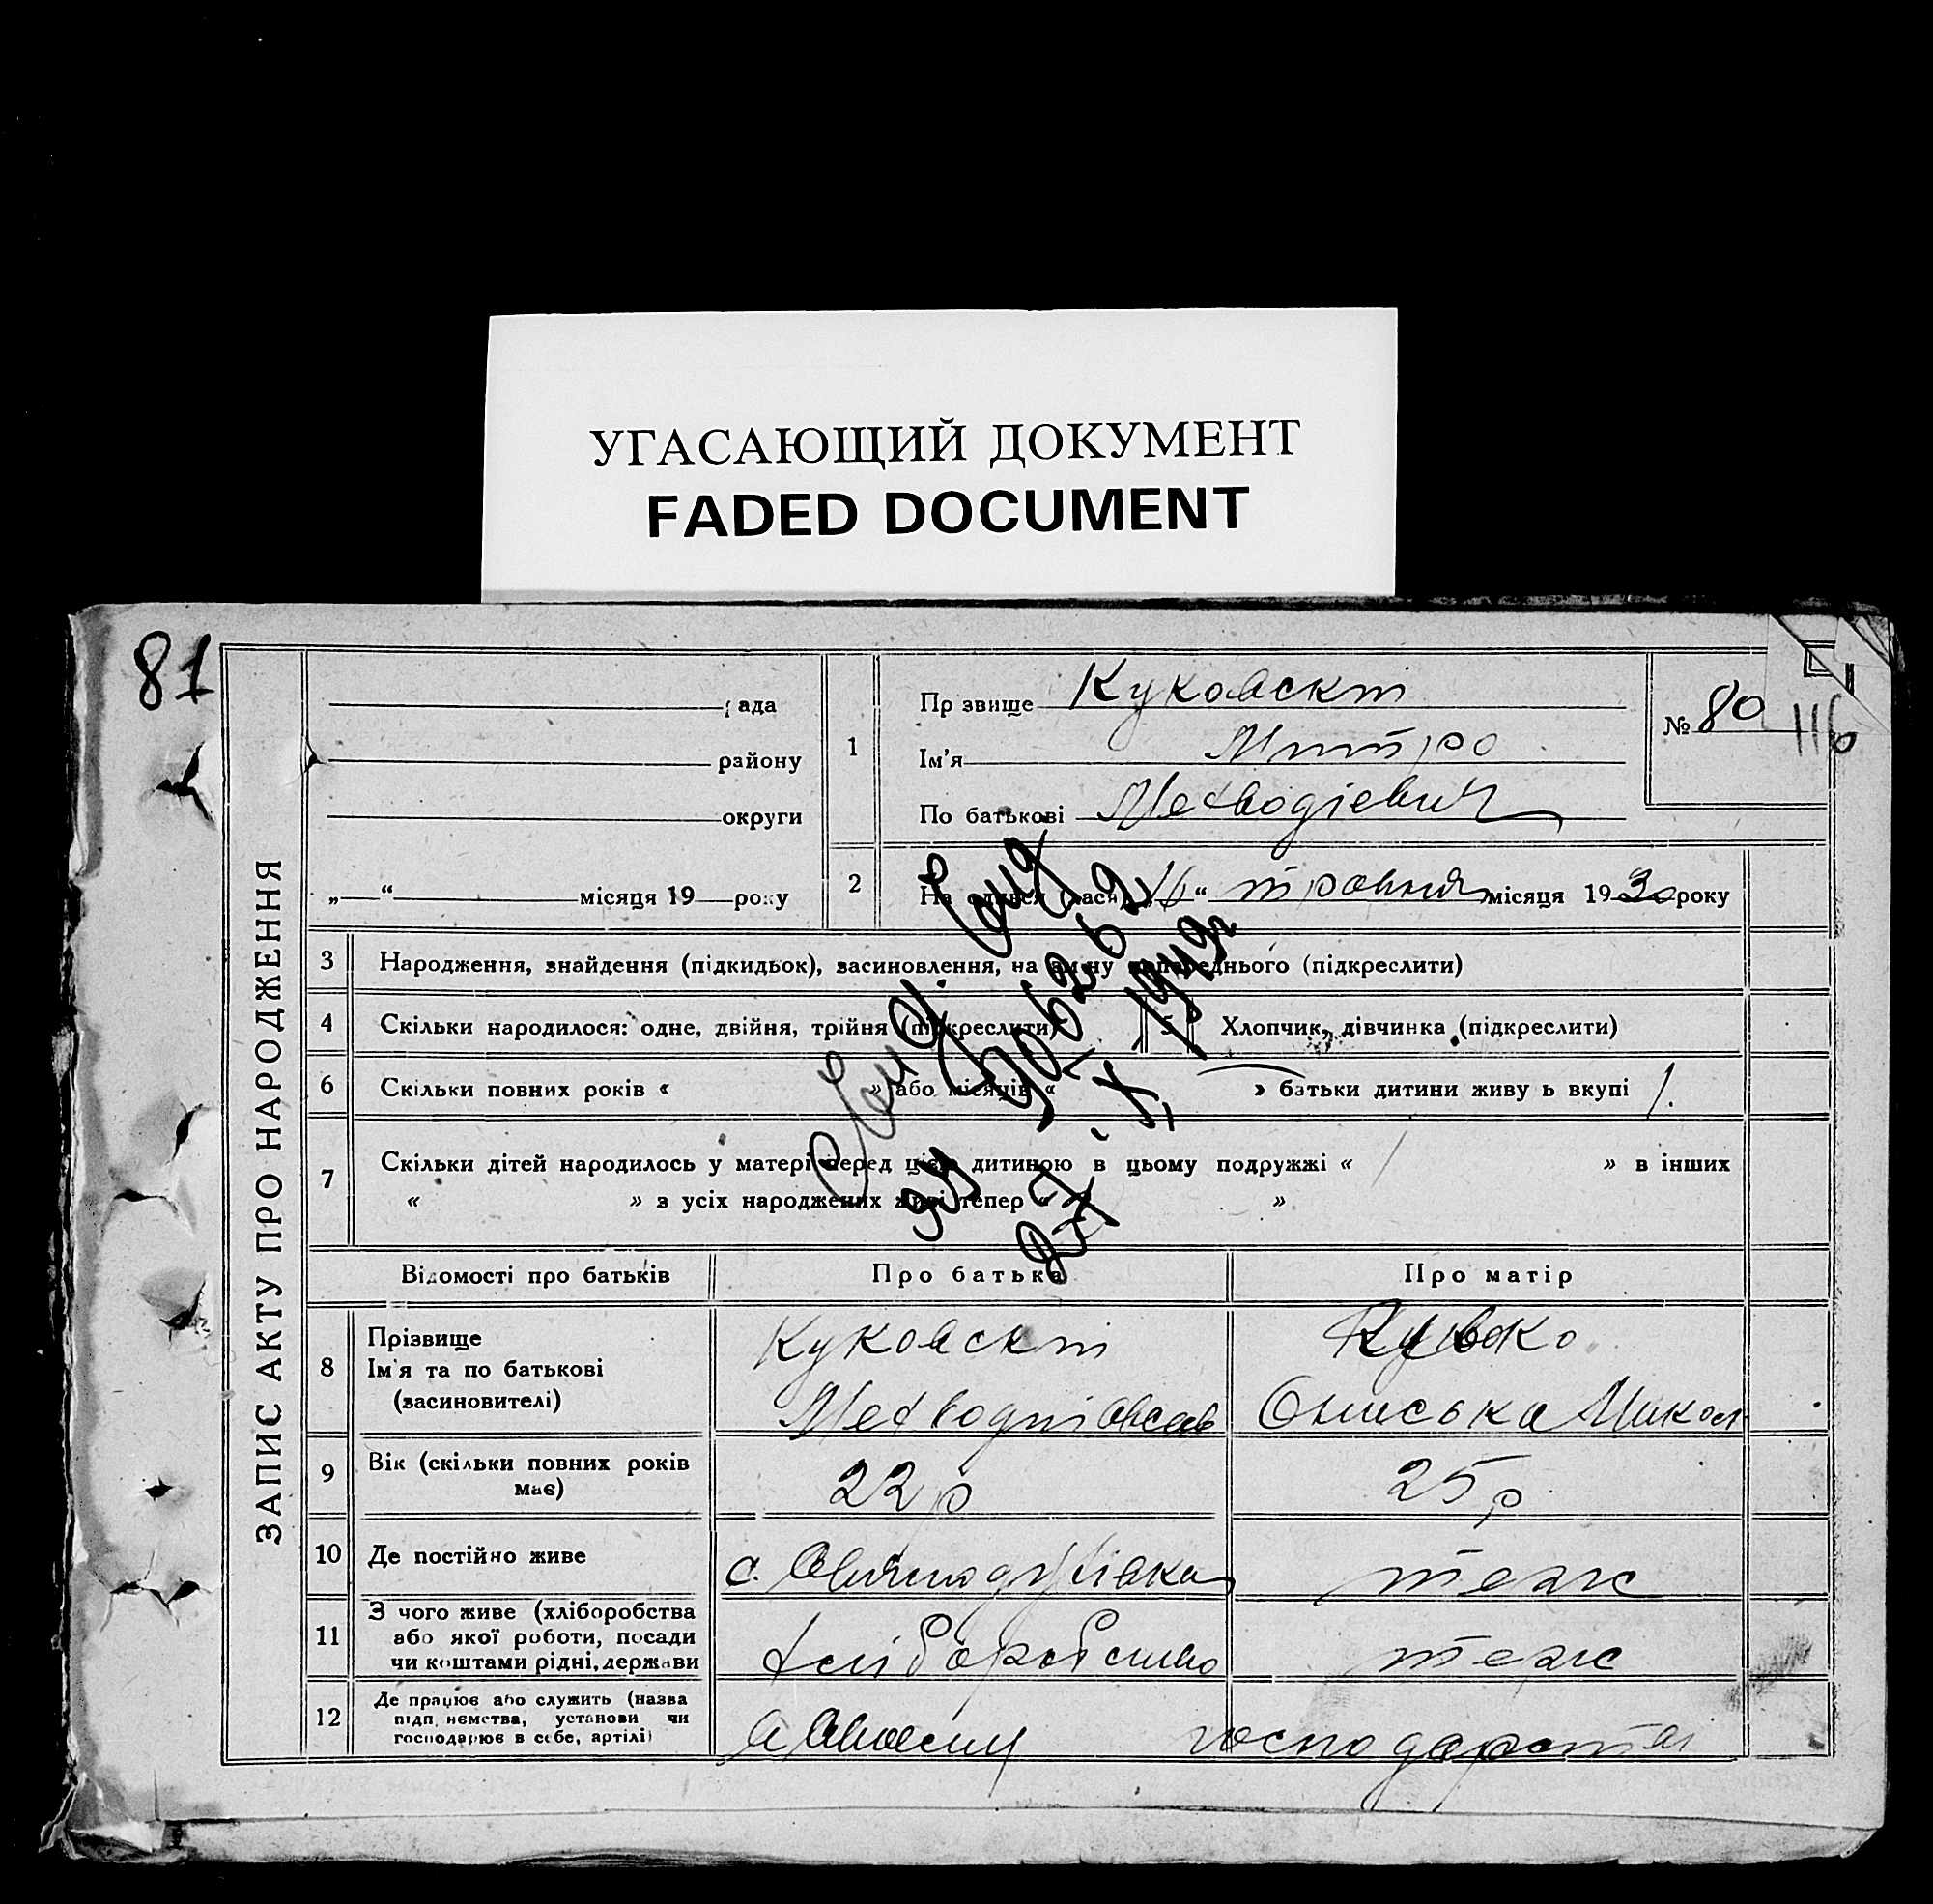 УГАСАЮЩИЙ ДОКУМЕНТ
FADED DOCUMENT
81
ЗАПИС АКТУ ПРО НАРОДЖЕННЯ
рада
району
округи
„ “ місяця 19 року
1
Пр звище Куковскт
Ім'я Митро
По батькові Метводіевич
№ 80
116
2
16 “ травня місяця 1930 року
3 Народження, знайдення (підкидьок), засиновлення, на зміну попереднього (підкреслити)
4 Скільки народилося: одне, двійня, трійня (підкреслити)
5 Хлопчик, дівчинка (підкреслити)
6 Скільки повних років « » або місяців « » батьки дитини живу ь вкупі 1.
7 Скільки дітей народилось у матері перед цією дитиною в цьому подружжі « » в інших
« » з усіх народжених живі тепер « »
27. X
Відомості про батьків Про батька Про матір
8 Прізвище
Ім'я та по батькові
(засиновителі)
Куковскт
Ониська Микол
9 Вік (скільки повних років має)
22 р
25 р
10 Де постійно живе
с.
теж
11 З чого живе (хліборобства
або якої роботи, посади
чи коштами рідні, держави
хліборобство
теж
12 Де працює або служить (назва
підп. немства, установи чи
господарює в себе, артілі)